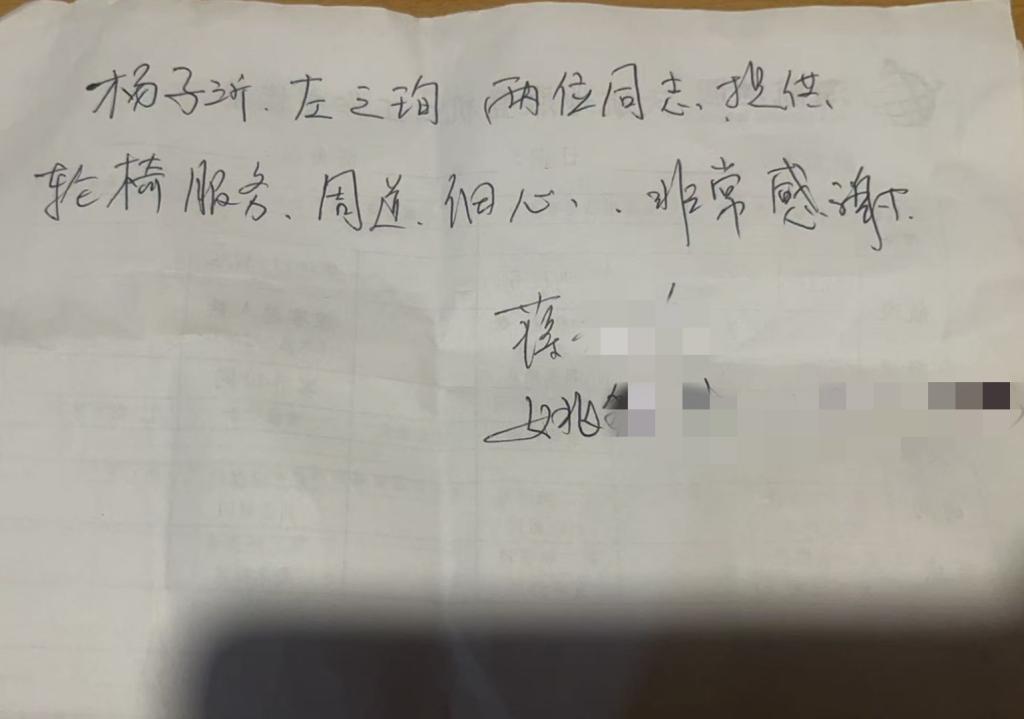 杨子江、左之珣 两位同志、提供、
轮椅服务、周道、细心、、非常感谢.
蒋
姚